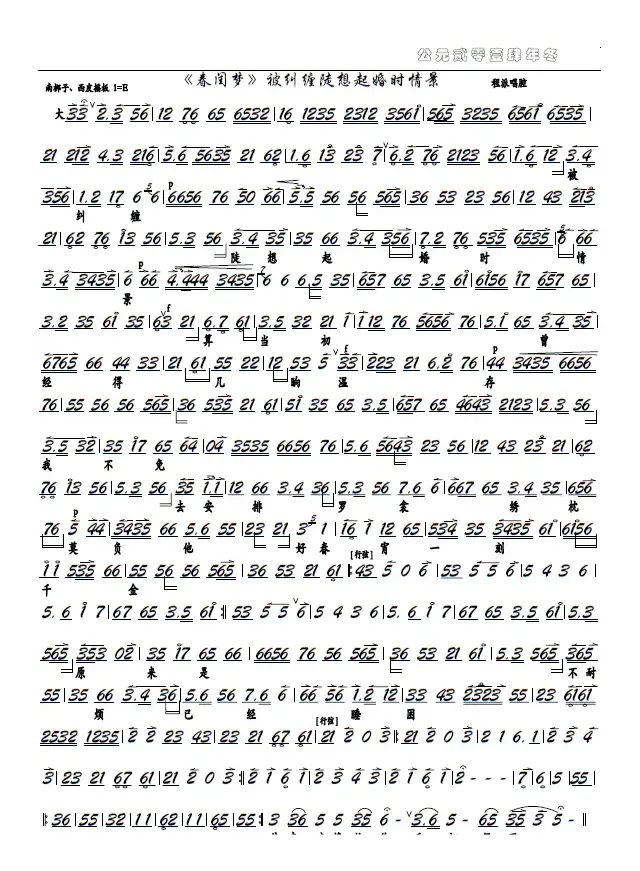 公元贰零壹肆年冬
《春闺梦》被纠缠陡想起婚时情景
南梆子、西皮摇板 1=E
程派唱腔
大33 2.3 56|12 76 65 6532|16 1235 2312 3561|565 3235 6561 6535|
21 212 4.3 216|5.6 5635 21 62|1.6 13 23 7|6.2 76 2123 56|1.6 12|3.4
被
356|1.2 17 6 6|6656 76 50 66|3.5 56 56 565|36 53 23 56|12 43 213
纠 缠
21|62 76 13 56|5.3 56|3.4 35|35 66 3.4 356|7.2 76 535 6535|6 66
陡 想 起 婚 时 情
3.4 3435|6 66 4.444 3435|6 6 6.5 35|657 65 3.5 61|6156 17 657 65|
景
3.2 35 61 35|63 21 6.7 61|3.5 32 21 1|112 76 5656 76|5.1 65 3.4 35|
算 当 初 曾
6765 66 44 33|21 61 55 22|12 53 5 33|223 21 6.2 76|44 3435 6656
经 得 几 晌 温 存
76|55 56 56 565|36 535 21 61|51 35 65 3.5|657 65 4643 2123|5.3 56
3.5 32|35 17 65 64|04 3535 6656 76|5.6 5643 23 56|12 43 23 21|62
我 不 免
76 13 56|5.3 56 35 1.1|12 66 3.4 36|5.3 56 7.6 6|667 65 3.4 35|656
去 安 排 罗 衾 绣 枕
76 5 44|3435 66 5.6 55|23 21 3 1|16 1 12 65|534 35 3435 61|6156
莫 负 他 好 春 宵 一 刻
[行弦]
11 535 66|55 56 56 565|36 53 21 61|:43 5 0 6|53 5 5 6|5 4 3 6|
千 金
5. 6 1 7|67 65 3.5 61:|53 5 5 6|5 4 3 6|5. 6 1 7|67 65 3.5 61|5.3
565 353 02|35 17 65 66|6656 76 56 565|36 53 21 61|5.3 565 365
原 来 是 不 耐
55|35 66 3.4 36|5.6 56 7.6 6|66 56 1.2 12|33 43 2323 55|23 6161
烦 已 经 睡 困
[行弦]
2532 1235|2 2 23 43|23 21 67 61|21 2 0 3|:21 2 0 3|2 1 6. 1|2 3 4
3|23 21 67 61|21 2 0 3:|2 1 6 1|2 3 4 3|2 1 6 1|2 - - -|7|6|5|55|
|:36|55|32|11|62|11|65|55:|3 36 5 5 35 6 -|3.6 5 - 65 35 3 5 -||